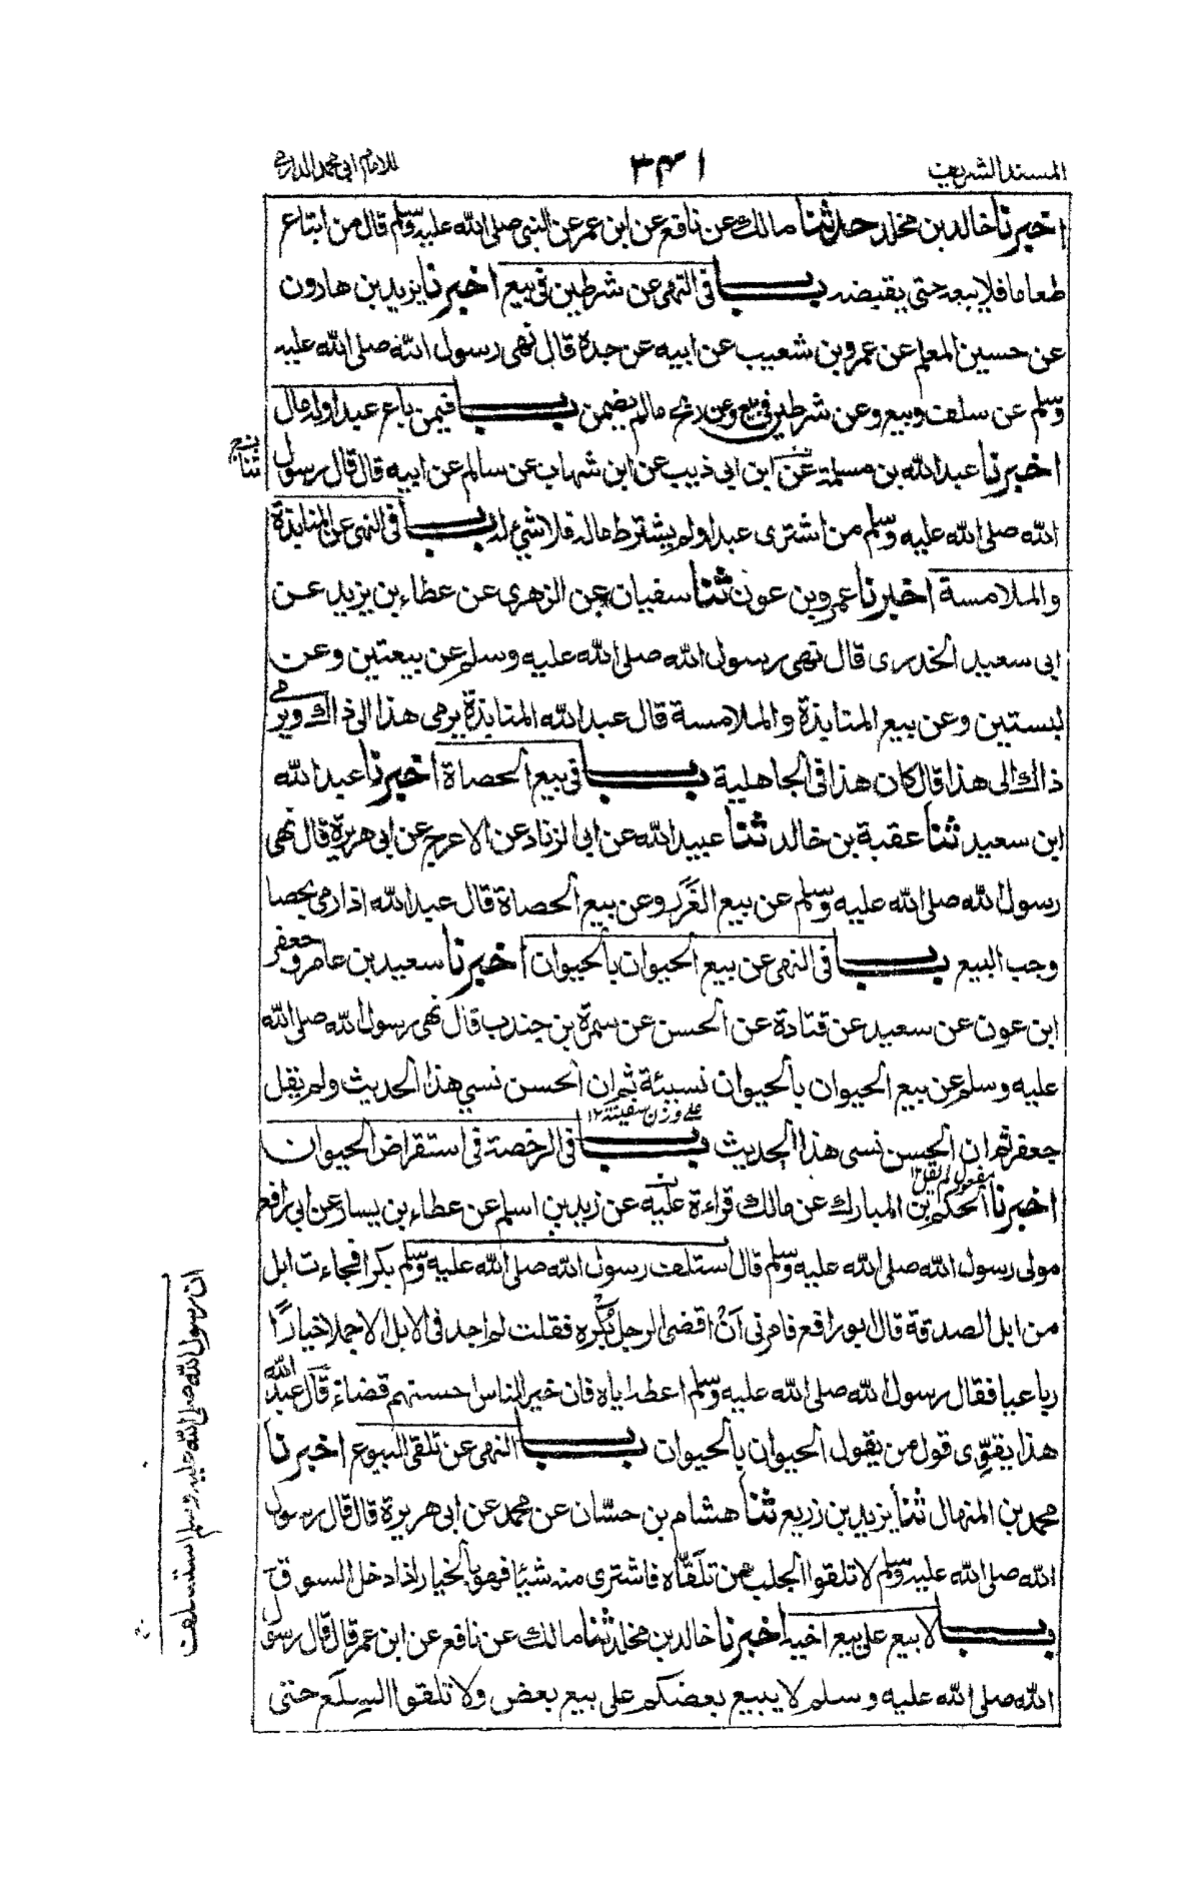 المسند الشريف
٣٤١
للامام ابى محمد الدارمى
اخبرنا خالد بن مخلد حدثنا مالك عن نافع عن ابن عمر عن النبى صلى الله عليه وسلم قال من ابتاع
طعاما فلا يبعه حتى يقبضه باب فى النهى عن شرطين فى بيع اخبرنا يزيد بن هارون
عن حسين المعلم عن عمرو بن شعيب عن ابيه عن جده قال نهى رسول الله صلى الله عليه
وسلم عن سلف وبيع وعن شرطين فى بيع وعن ربح مالم يضمن باب فيمن باع عبدا وله مال
اخبرنا عبد الله بن مسلمة عن ابن ابى ذيب عن ابن شهاب عن سالم عن ابيه قال قال رسول
ثنا
الله صلى الله عليه وسلم من اشترى عبدا ولم يشترط ماله فلا شيئ له باب فى النهى عن المنابذة
والملامسة اخبرنا عمرو بن عون ثنا سفيان عن الزهرى عن عطاء بن يزيد عن
ابى سعيد الخدرى قال نهى رسول الله صلى الله عليه وسلم عن بيعتين وعن
لبستين وعن بيع المنابذة والملامسة قال عبد الله المنابذة يرمى هذا الى ذاك ويرمى
ذاك الى هذا قال كان هذا فى الجاهلية باب فى بيع الحصاة اخبرنا عبد الله
ابن سعيد ثنا عقبة بن خالد ثنا عبيد الله عن ابى الزناد عن الاعرج عن ابى هريرة قال نهى
رسول الله صلى الله عليه وسلم عن بيع الغَرَر وعن بيع الحصاة قال عبد الله اذا رمى بحصا
وجب البيع باب فى النهى عن بيع الحيوان بالحيوان اخبرنا سعيد بن عامر وجعفر
ابن عون عن سعيد عن قتادة عن الحسن عن سمرة بن جندب قال نهى رسول الله صلى الله
عليه وسلم عن بيع الحيوان بالحيوان نسيئة ثم ان الحسن نسي هذا الحديث ولم يقل
على وزن سفينة ١٢
جعفر ثم ان الحسن نسى هذا الحديث باب فى الرخصة فى استقراض الحيوان
مفعول لم يقل ١٢
اخبرنا الحكم بن المبارك عن مالك قراءة عليه عن زيد بن اسلم عن عطاء بن يسار عن ابى رافع
مولى رسول الله صلى الله عليه وسلم قال استلف رسول الله صلى الله عليه وسلم بكرا فجاءت ابل
من ابل الصدقة قال ابو رافع فامرنى اَنْ اقضى الرجل بَكْره فقلت لم اجد فى الابل الا جملا خيارًا
رباعيا فقال رسول الله صلى الله عليه وسلم اعطه اياه فان خير الناس احسنهم قضاء قال عبد الله
هذا يقوِّى قول من يقول الحيوان بالحيوان باب النهى عن تلقى البيوع اخبرنا
محمد بن المنهال ثنا يزيد بن زريع ثنا هشام بن حسّان عن محمد عن ابى هريرة قال قال رسول
الله صلى الله عليه وسلم لا تلقوا الجلب من تلَقّاه فاشترى منه شيئا فهو بالخيار اذا دخل السوق
باب لا يبيع على بيع اخيه اخبرنا خالد بن مخلد ثنا مالك عن نافع عن ابن عمر قال قال رسول
الله صلى الله عليه وسلم لا يبيع بعضكم على بيع بعض ولا تلقوا السلَع حتى
ان رسول الله صلى الله عليه وسلم استسلف